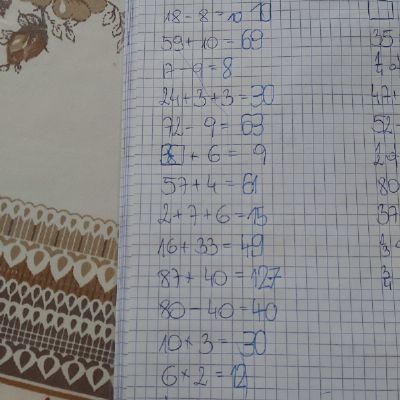 18 - 8 = 10 10
59 + 10 = 69
17 - 9 = 8
24 + 3 + 3 = 30
72 - 9 = 63
+ 6 = 9
57 + 4 = 61
2 + 7 + 6 = 15
16 + 33 = 49
87 + 40 = 127
80 - 40 = 40
10 × 3 = 30
6 × 2 = 12
35
47+
52-
80
37